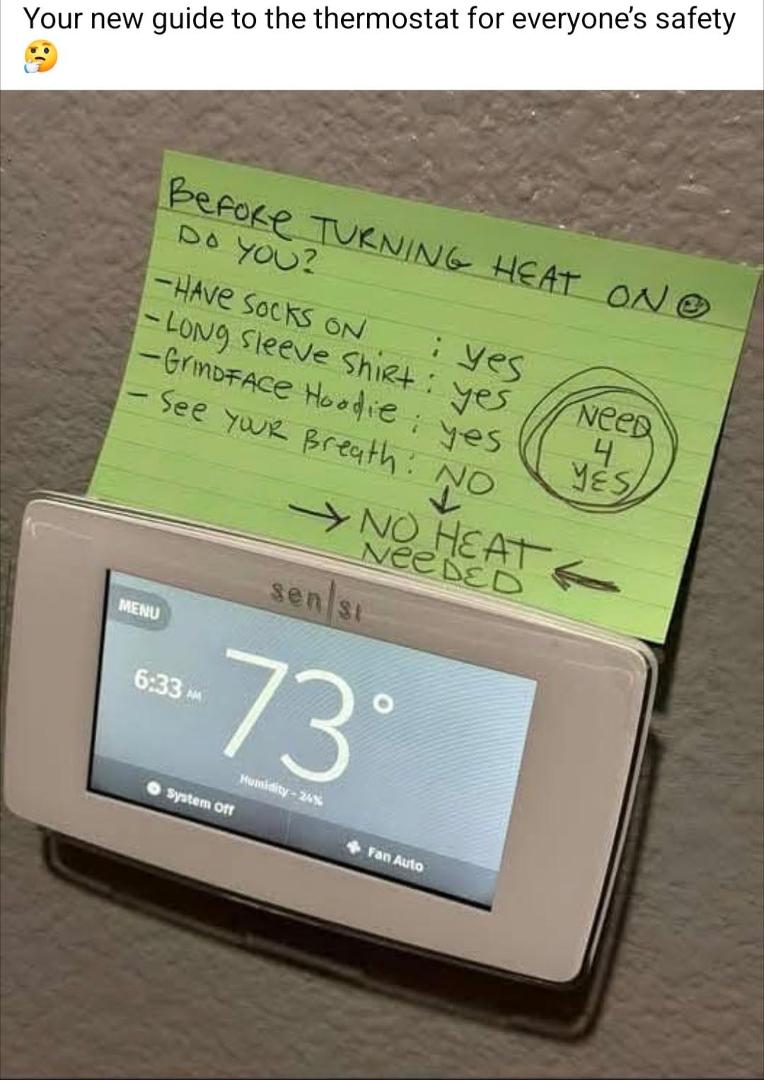 Your new guide to the thermostat for everyone's safety
🤔
BeFoRe TURNING HEAT ON ☺
DO YOU?
-HAVe SOCKS ON : yes
-LONg Sleeve Shirt : yes
-GrinDFACe Hoodie : yes
- See YOUR Breath : NO
NeeD
4
YES
↓
→ NO HEAT ←
NeeDED
sen|si
MENU
6:33 AM
73°
Humidity - 24%
System Off
Fan Auto